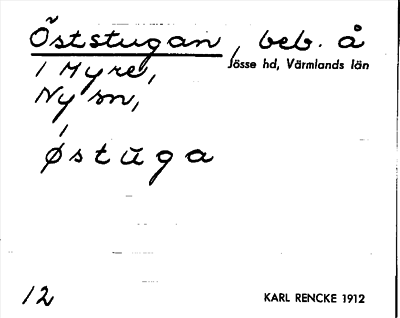 Öststugan, beb. å
1 Myre, Jösse hd, Värmlands län
Ny sn,
østūga
12 KARL RENCKE 1912